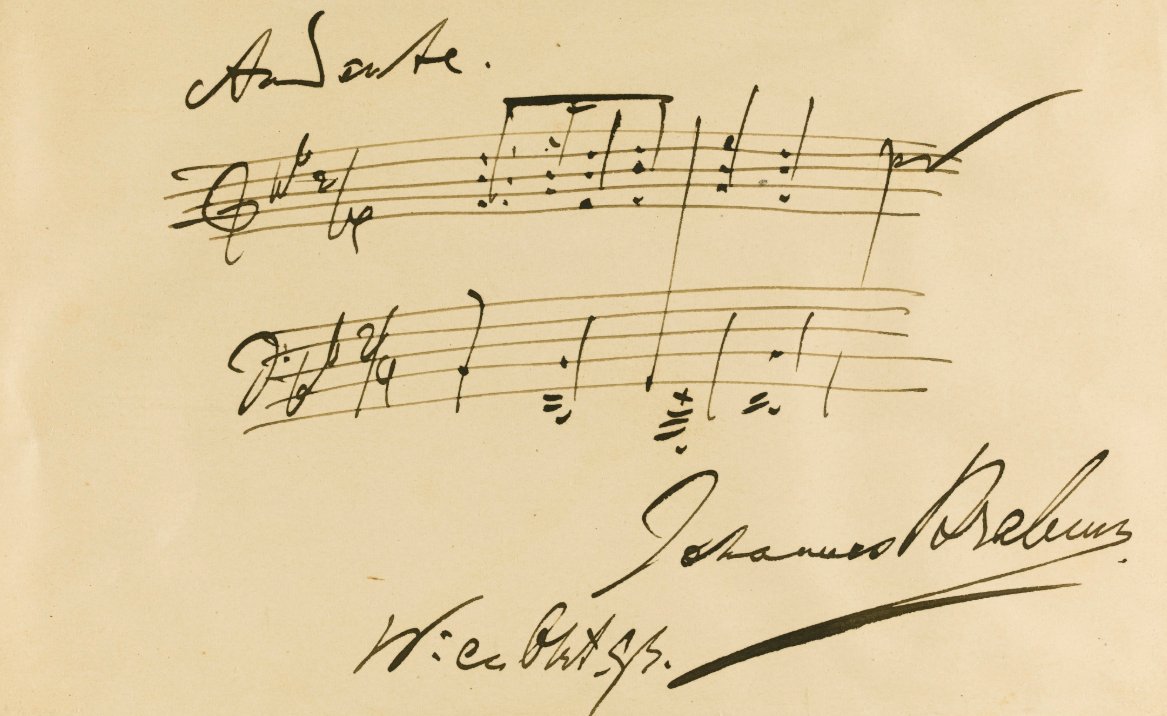 Andante.
2/4
2/4
Johannes Brahms.
Wien Okt. 93.